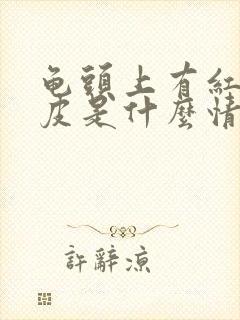 龟頭上有紅
皮是什麼情
許辭凉